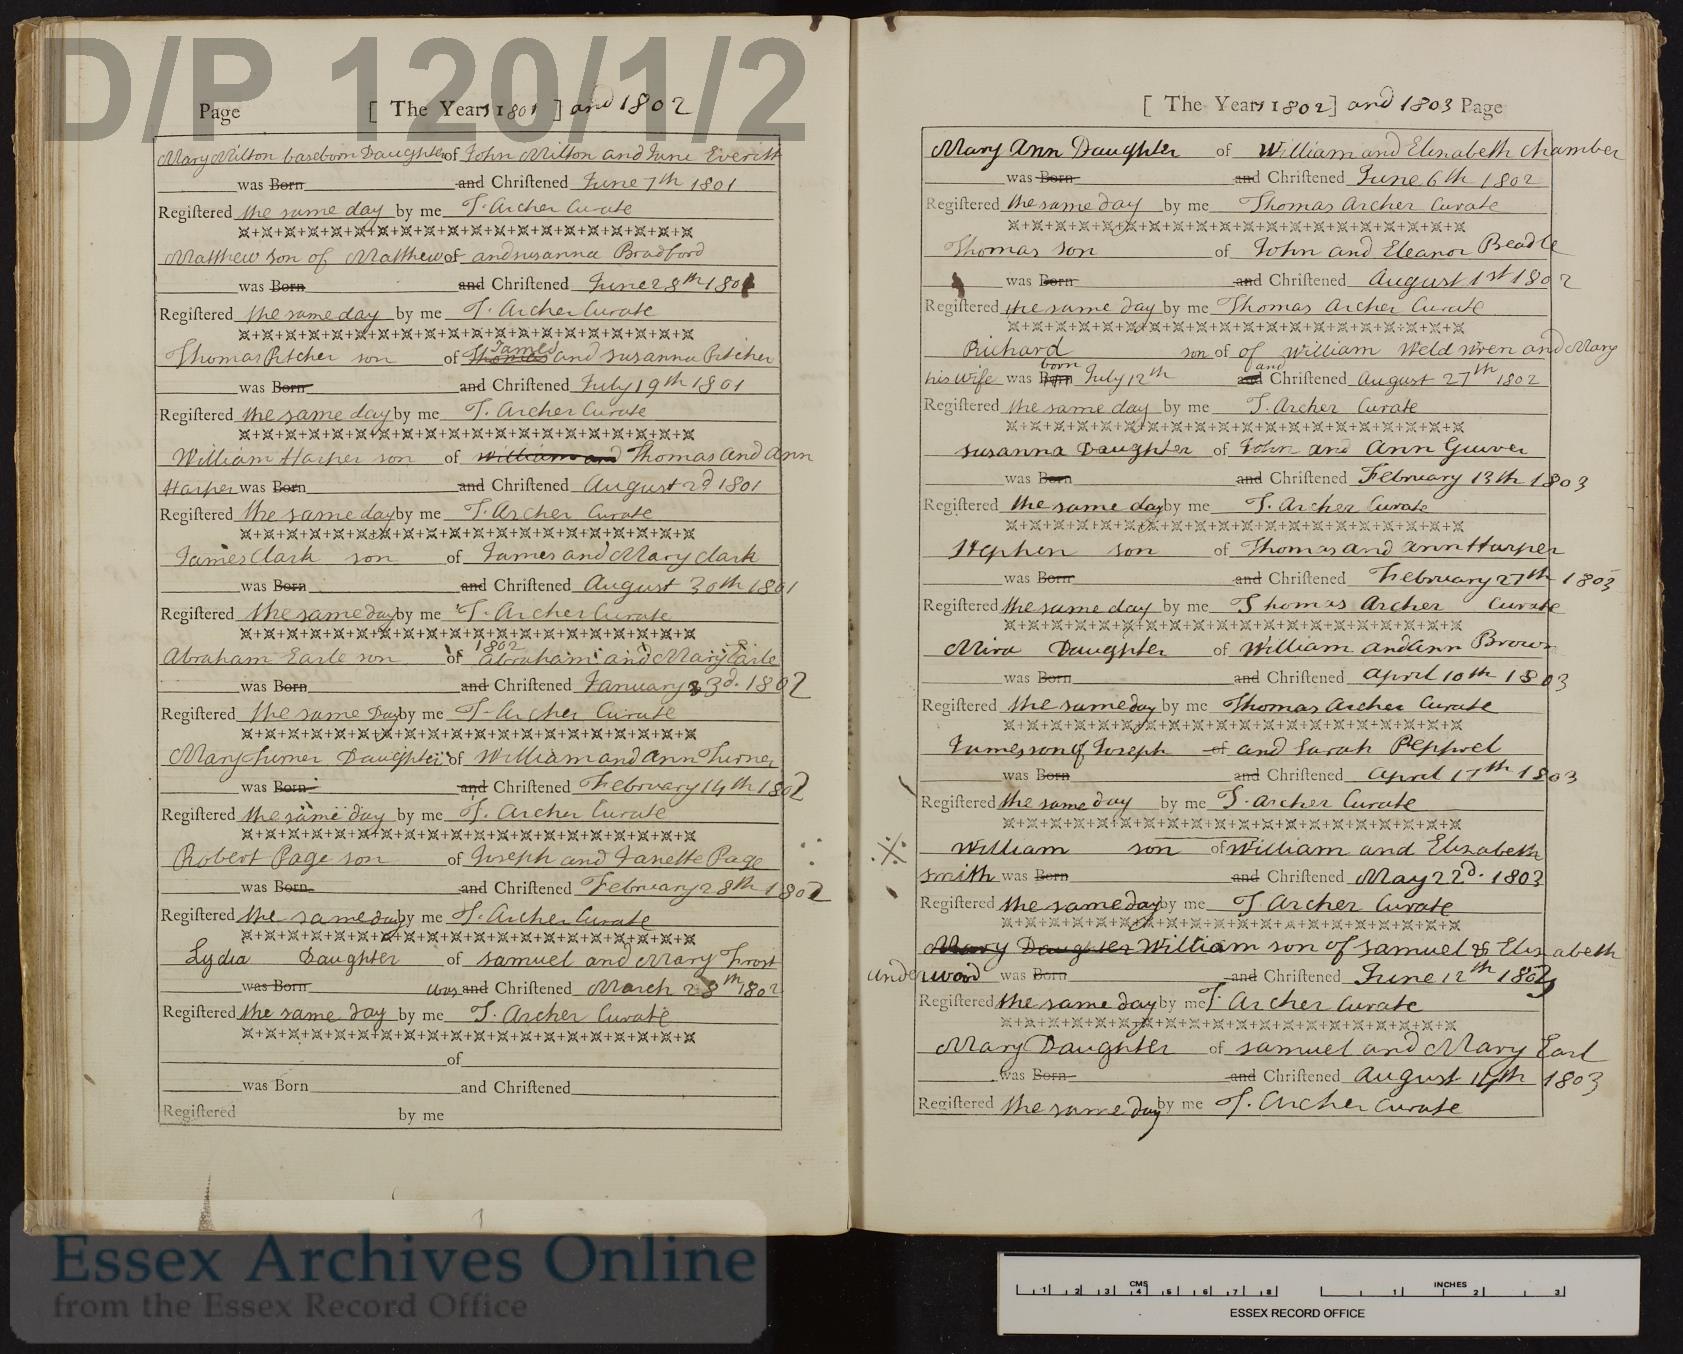 D/P 120/1/2
Page [ The Years 1801 ] and 1802
Mary Milton baseborn Daughter of John Milton and Jane Everitt
was Born and Chriſtened June 7th 1801
Regiſtered the same day by me T. Archer Curate
Matthew son of Matthew of and susanna Bradford
was Born and Chriſtened June 28th 1801
Regiſtered the same day by me T. Archer Curate
James
Thomas Pitcher son of Thomas and susanna Pitcher
was Born and Chriſtened July 19th 1801
Regiſtered the same day by me T. Archer Curate
William Harper son of William and Thomas and Ann
Harper was Born and Chriſtened August 2d 1801
Regiſtered the same day by me T. Archer Curate
James Clark son of James and Mary Clark
was Born and Chriſtened August 30th 1801
Regiſtered the same day by me T. Archer Curate
1802
Abraham Earle son of Abraham and Mary Earle
was Born and Chriſtened January 3d. 1802
Regiſtered the same Day by me T. Archer Curate
Mary Turner Daughter of William and Ann Turner
was Born and Chriſtened February 14th 1802
Regiſtered the same day by me T. Archer Curate
Robert Page son of Joseph and Janette Page
was Born and Chriſtened February 28th 1802
Regiſtered the same day by me T. Archer Curate
Lydia Daughter of samuel and Mary Frost
was Born was and Chriſtened March 28th 1802
Regiſtered the same day by me T. Archer Curate
of
was Born and Chriſtened
Regiſtered by me
[ The Years 1802 ] and 1803 Page
Mary Ann Daughter of William and Elizabeth Chamber
was Born and Chriſtened June 6th 1802
Regiſtered the same day by me Thomas Archer Curate
Thomas son of John and Eleanor Beadle
was Born and Chriſtened August 1st 1802
Regiſtered the same day by me Thomas Archer Curate
Richard son of of William Weld Wren and Mary
born and
his wife was Born July 12th and Chriſtened August 27th 1802
Regiſtered the same day by me T. Archer Curate
susanna Daughter of John and Ann Guiver
was Born and Chriſtened February 13th 1803
Regiſtered the same day by me T. Archer Curate
Stephen son of Thomas and Ann Harper
was Born and Chriſtened February 27th 1803
Regiſtered the same day by me Thomas Archer Curate
Mira Daughter of William and Ann Brown
was Born and Chriſtened April 10th 1803
Regiſtered the same day by me Thomas Archer Curate
James son of Joseph of and Sarah Pepprel
was Born and Chriſtened April 17th 1803
Regiſtered the same day by me T. Archer Curate
William son of William and Elizabeth
Smith was Born and Chriſtened May 22d. 1803
Regiſtered the same day by me T Archer Curate
Mary Daughter William son of Samuel & Elizabeth
underwood was Born and Chriſtened June 12th 1803
Regiſtered the same day by me T. Archer Curate
Mary Daughter of samuel and Mary Earl
was Born and Chriſtened August 14th 1803
Regiſtered the same day by me T. Archer Curate
Essex Archives Online
from the Essex Record Office
CMS
1 2 3 4 5 6 7 8
INCHES
1 2 3
ESSEX RECORD OFFICE